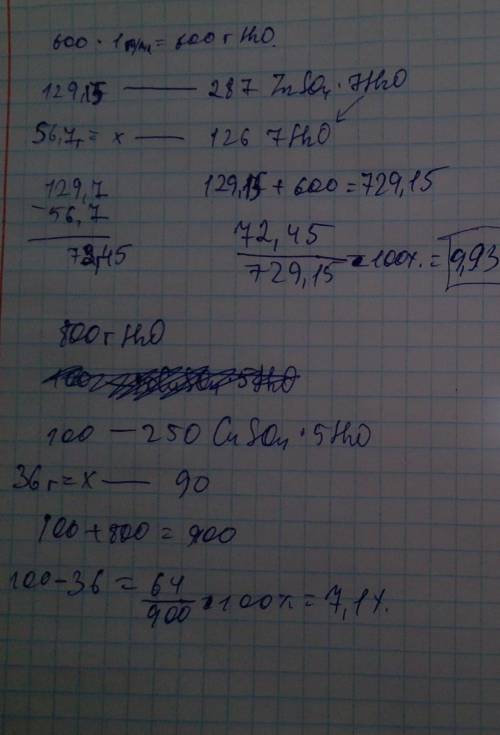 600 · 1 г/мл = 600 г H2O.
129,15 — 287 ZnSO4 · 7H2O
56,7г = x — 126 7H2O
129,7 129,15 + 600 = 729,15
- 56,7
73,45 72,45 / 729,15 · 100%. = 9,93
800 г H2O
100 — 250 CuSO4 · 5H2O
36 г = x — 90
100 + 800 = 900
100 - 36 = 64 / 900 · 100% = 7,1%.